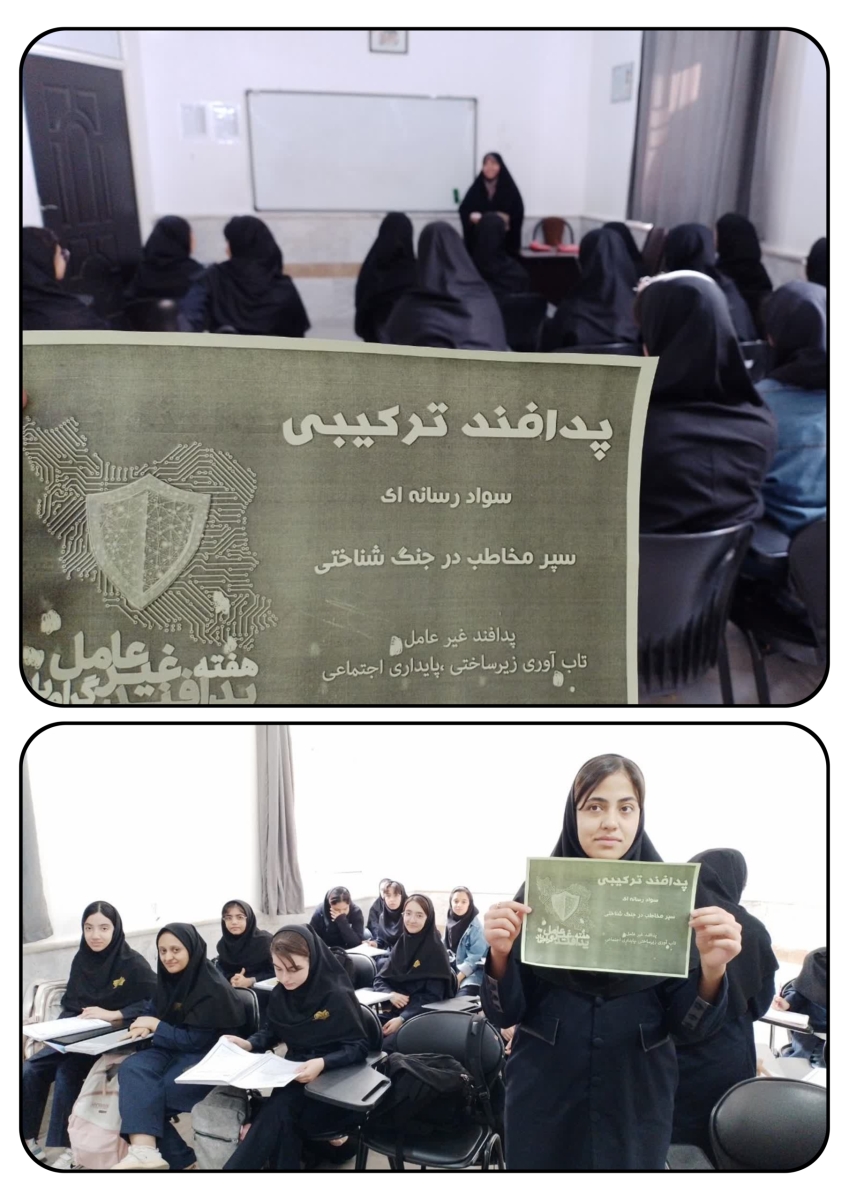 پدافند ترکیبی
سواد رسانه ای
سپر مخاطب در جنگ شناختی
پدافند غیر عامل
تاب آوری زیرساختی ،پایداری اجتماعی
هفته
پدافند غیر عامل
پدافند ترکیبی
سواد رسانه ای
سپر مخاطب در جنگ شناختی
پدافند غیر عامل
تاب آوری زیرساختی ،پایداری اجتماعی
هفته
پدافند غیر عامل